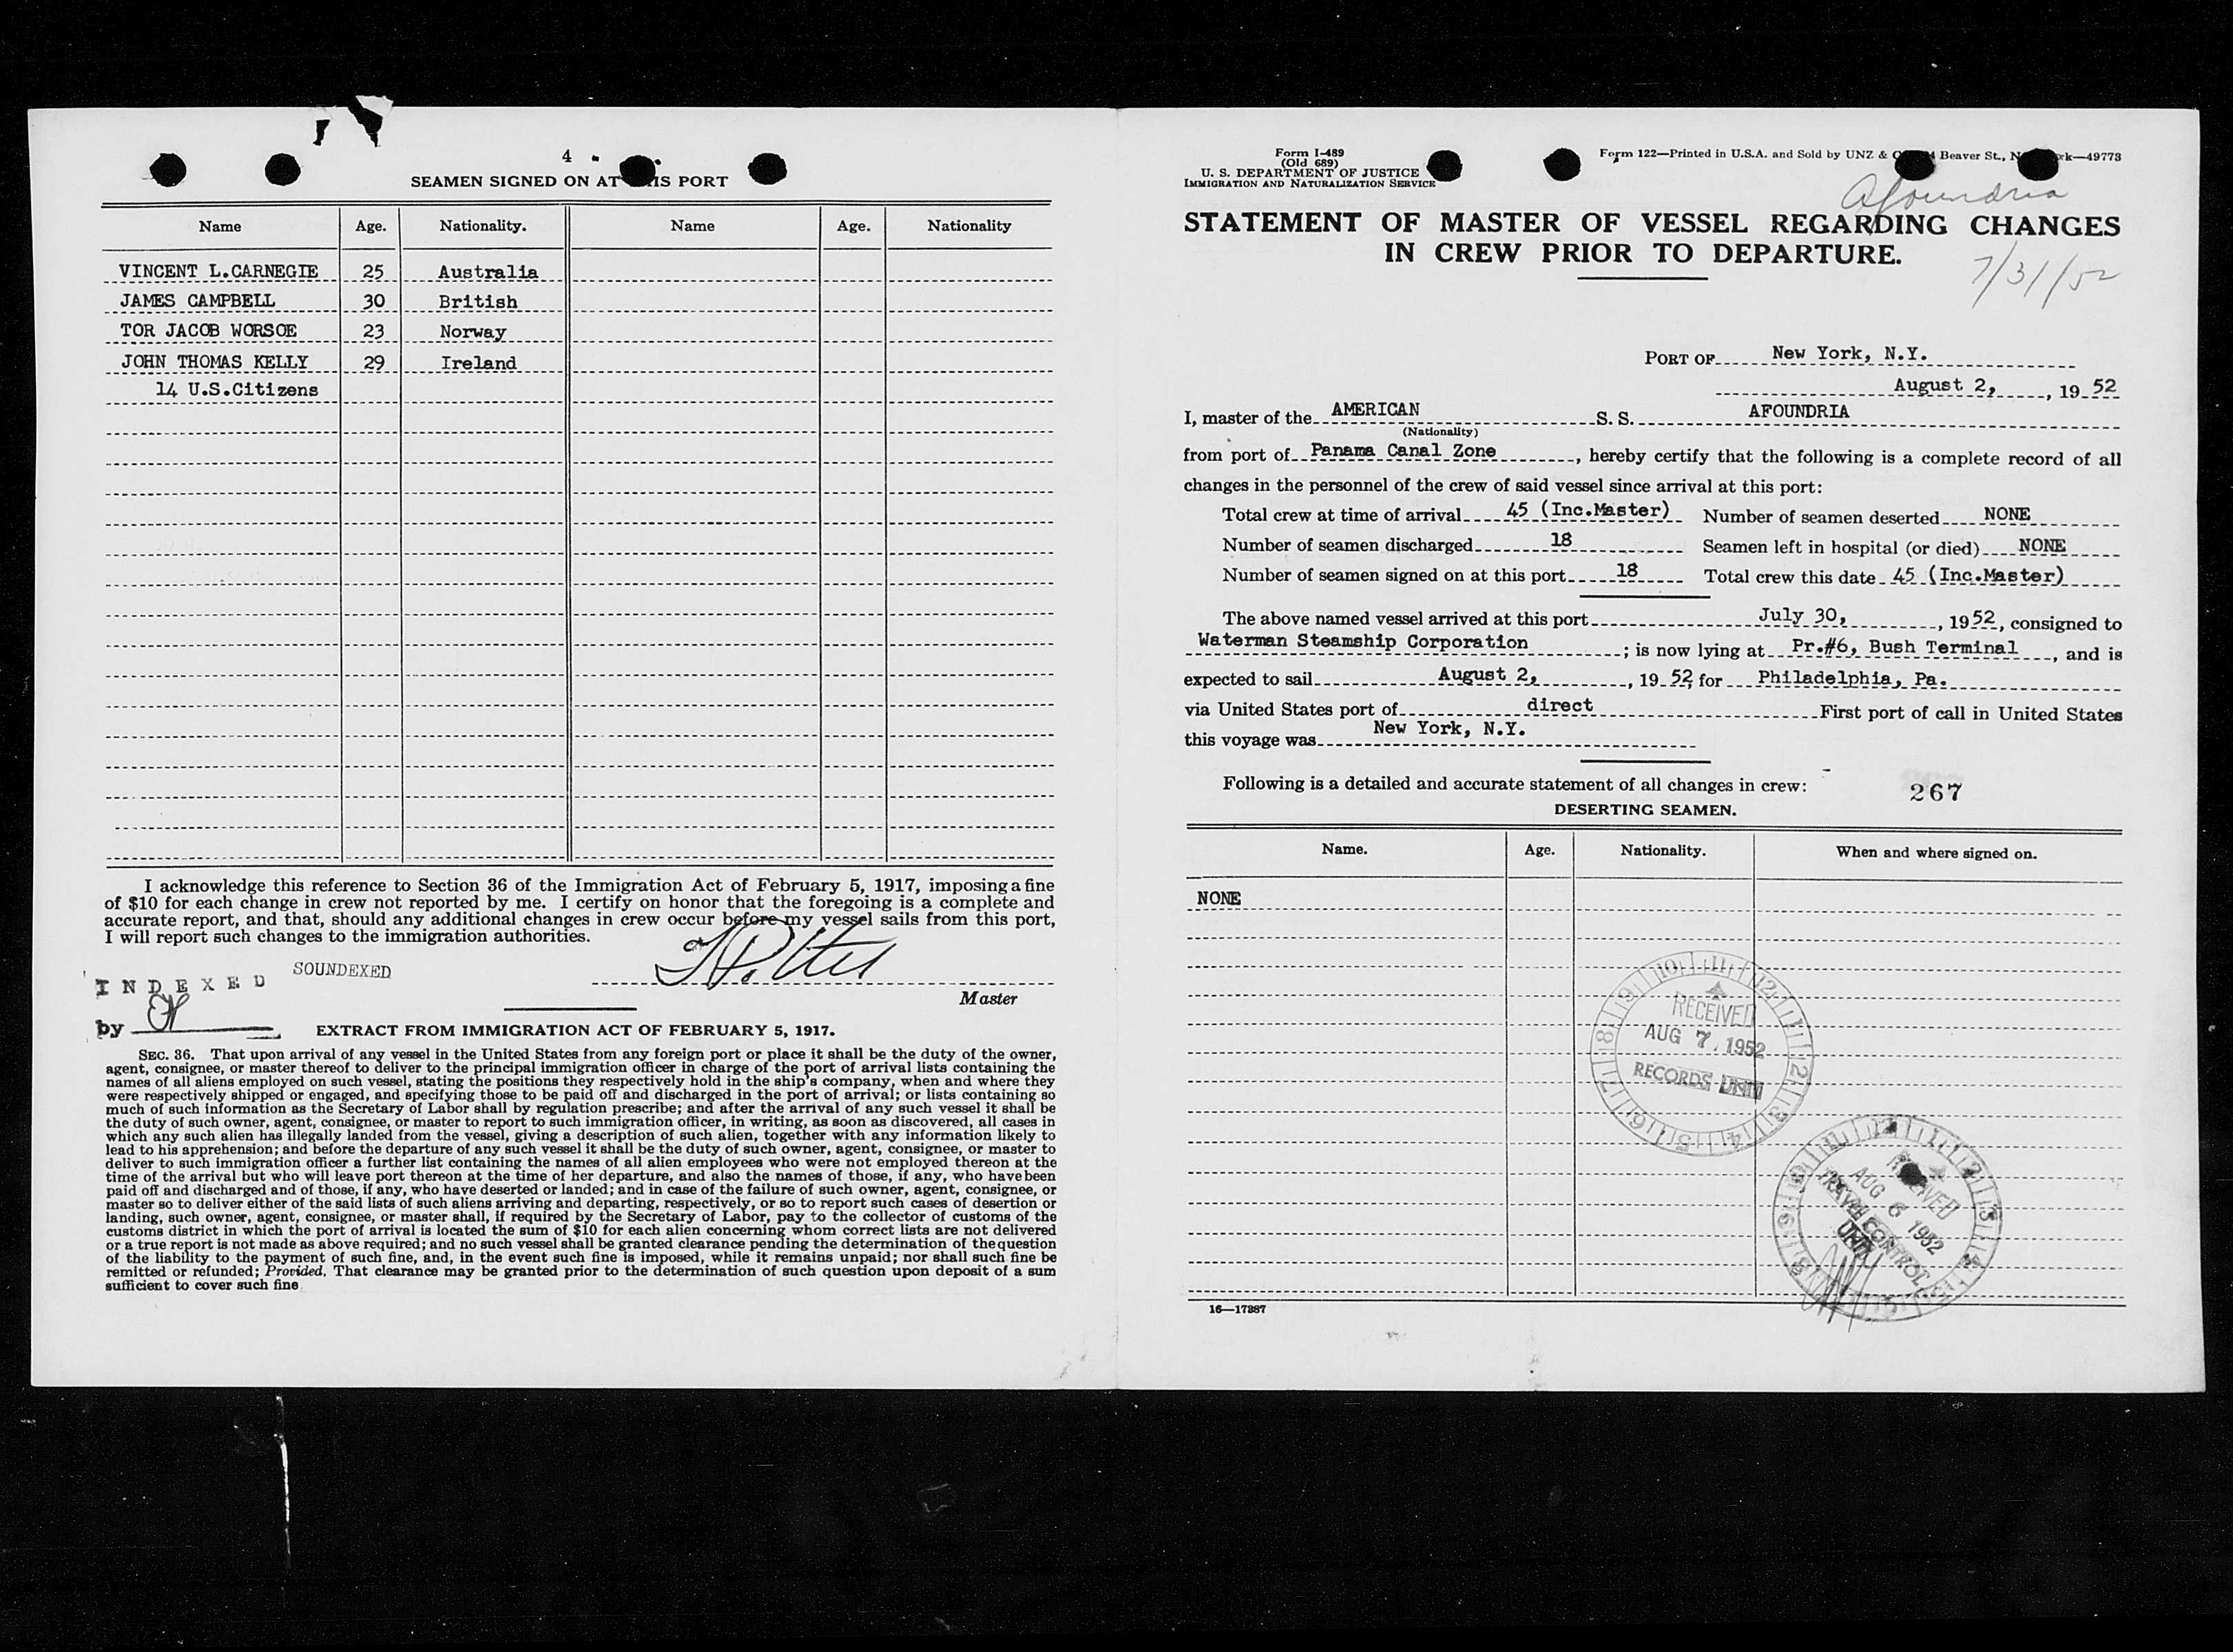 4
SEAMEN SIGNED ON AT THIS PORT
Name Age. Nationality. Name Age. Nationality
VINCENT L.CARNEGIE 25 Australia
JAMES CAMPBELL 30 British
TOR JACOB WORSOE 23 Norway
JOHN THOMAS KELLY 29 Ireland
14 U.S.Citizens
I acknowledge this reference to Section 36 of the Immigration Act of February 5, 1917, imposing a fine
of $10 for each change in crew not reported by me. I certify on honor that the foregoing is a complete and
accurate report, and that, should any additional changes in crew occur before my vessel sails from this port,
I will report such changes to the immigration authorities.
INDEXED SOUNDEXED
Master
by
EXTRACT FROM IMMIGRATION ACT OF FEBRUARY 5, 1917.
SEC. 36. That upon arrival of any vessel in the United States from any foreign port or place it shall be the duty of the owner,
agent, consignee, or master thereof to deliver to the principal immigration officer in charge of the port of arrival lists containing the
names of all aliens employed on such vessel, stating the positions they respectively hold in the ship's company, when and where they
were respectively shipped or engaged, and specifying those to be paid off and discharged in the port of arrival; or lists containing so
much of such information as the Secretary of Labor shall by regulation prescribe; and after the arrival of any such vessel it shall be
the duty of such owner, agent, consignee, or master to report to such immigration officer, in writing, as soon as discovered, all cases in
which any such alien has illegally landed from the vessel, giving a description of such alien, together with any information likely to
lead to his apprehension; and before the departure of any such vessel it shall be the duty of such owner, agent, consignee, or master to
deliver to such immigration officer a further list containing the names of all alien employees who were not employed thereon at the
time of the arrival but who will leave port thereon at the time of her departure, and also the names of those, if any, who have been
paid off and discharged and of those, if any, who have deserted or landed; and in case of the failure of such owner, agent, consignee, or
master so to deliver either of the said lists of such aliens arriving and departing, respectively, or so to report such cases of desertion or
landing, such owner, agent, consignee, or master shall, if required by the Secretary of Labor, pay to the collector of customs of the
customs district in which the port of arrival is located the sum of $10 for each alien concerning whom correct lists are not delivered
or a true report is not made as above required; and no such vessel shall be granted clearance pending the determination of the question
of the liability to the payment of such fine, and, in the event such fine is imposed, while it remains unpaid; nor shall such fine be
remitted or refunded; Provided, That clearance may be granted prior to the determination of such question upon deposit of a sum
sufficient to cover such fine
Form I-489
(Old 689)
U. S. DEPARTMENT OF JUSTICE
IMMIGRATION AND NATURALIZATION SERVICE
Form 122—Printed in U.S.A. and Sold by UNZ & Beaver St., 49773
Afoundria
STATEMENT OF MASTER OF VESSEL REGARDING CHANGES
IN CREW PRIOR TO DEPARTURE.
7/31/52
PORT OF New York, N.Y.
August 2, , 19 52
I, master of the AMERICAN S. S. AFOUNDRIA
(Nationality)
from port of Panama Canal Zone , hereby certify that the following is a complete record of all
changes in the personnel of the crew of said vessel since arrival at this port:
Total crew at time of arrival 45 (Inc.Master) Number of seamen deserted NONE
Number of seamen discharged 18 Seamen left in hospital (or died) NONE
Number of seamen signed on at this port 18 Total crew this date 45 (Inc.Master)
The above named vessel arrived at this port July 30, , 1952, consigned to
Waterman Steamship Corporation ; is now lying at Pr.#6, Bush Terminal , and is
expected to sail August 2, , 19 52 for Philadelphia, Pa.
via United States port of direct First port of call in United States
this voyage was New York, N.Y.
Following is a detailed and accurate statement of all changes in crew:
267
DESERTING SEAMEN.
Name. Age. Nationality. When and where signed on.
NONE
RECEIVED
AUG 7. 1952
RECORDS UNIT
RECEIVED
AUG 6 1952
TRAVEL CONTROL
UNIT
16—17887